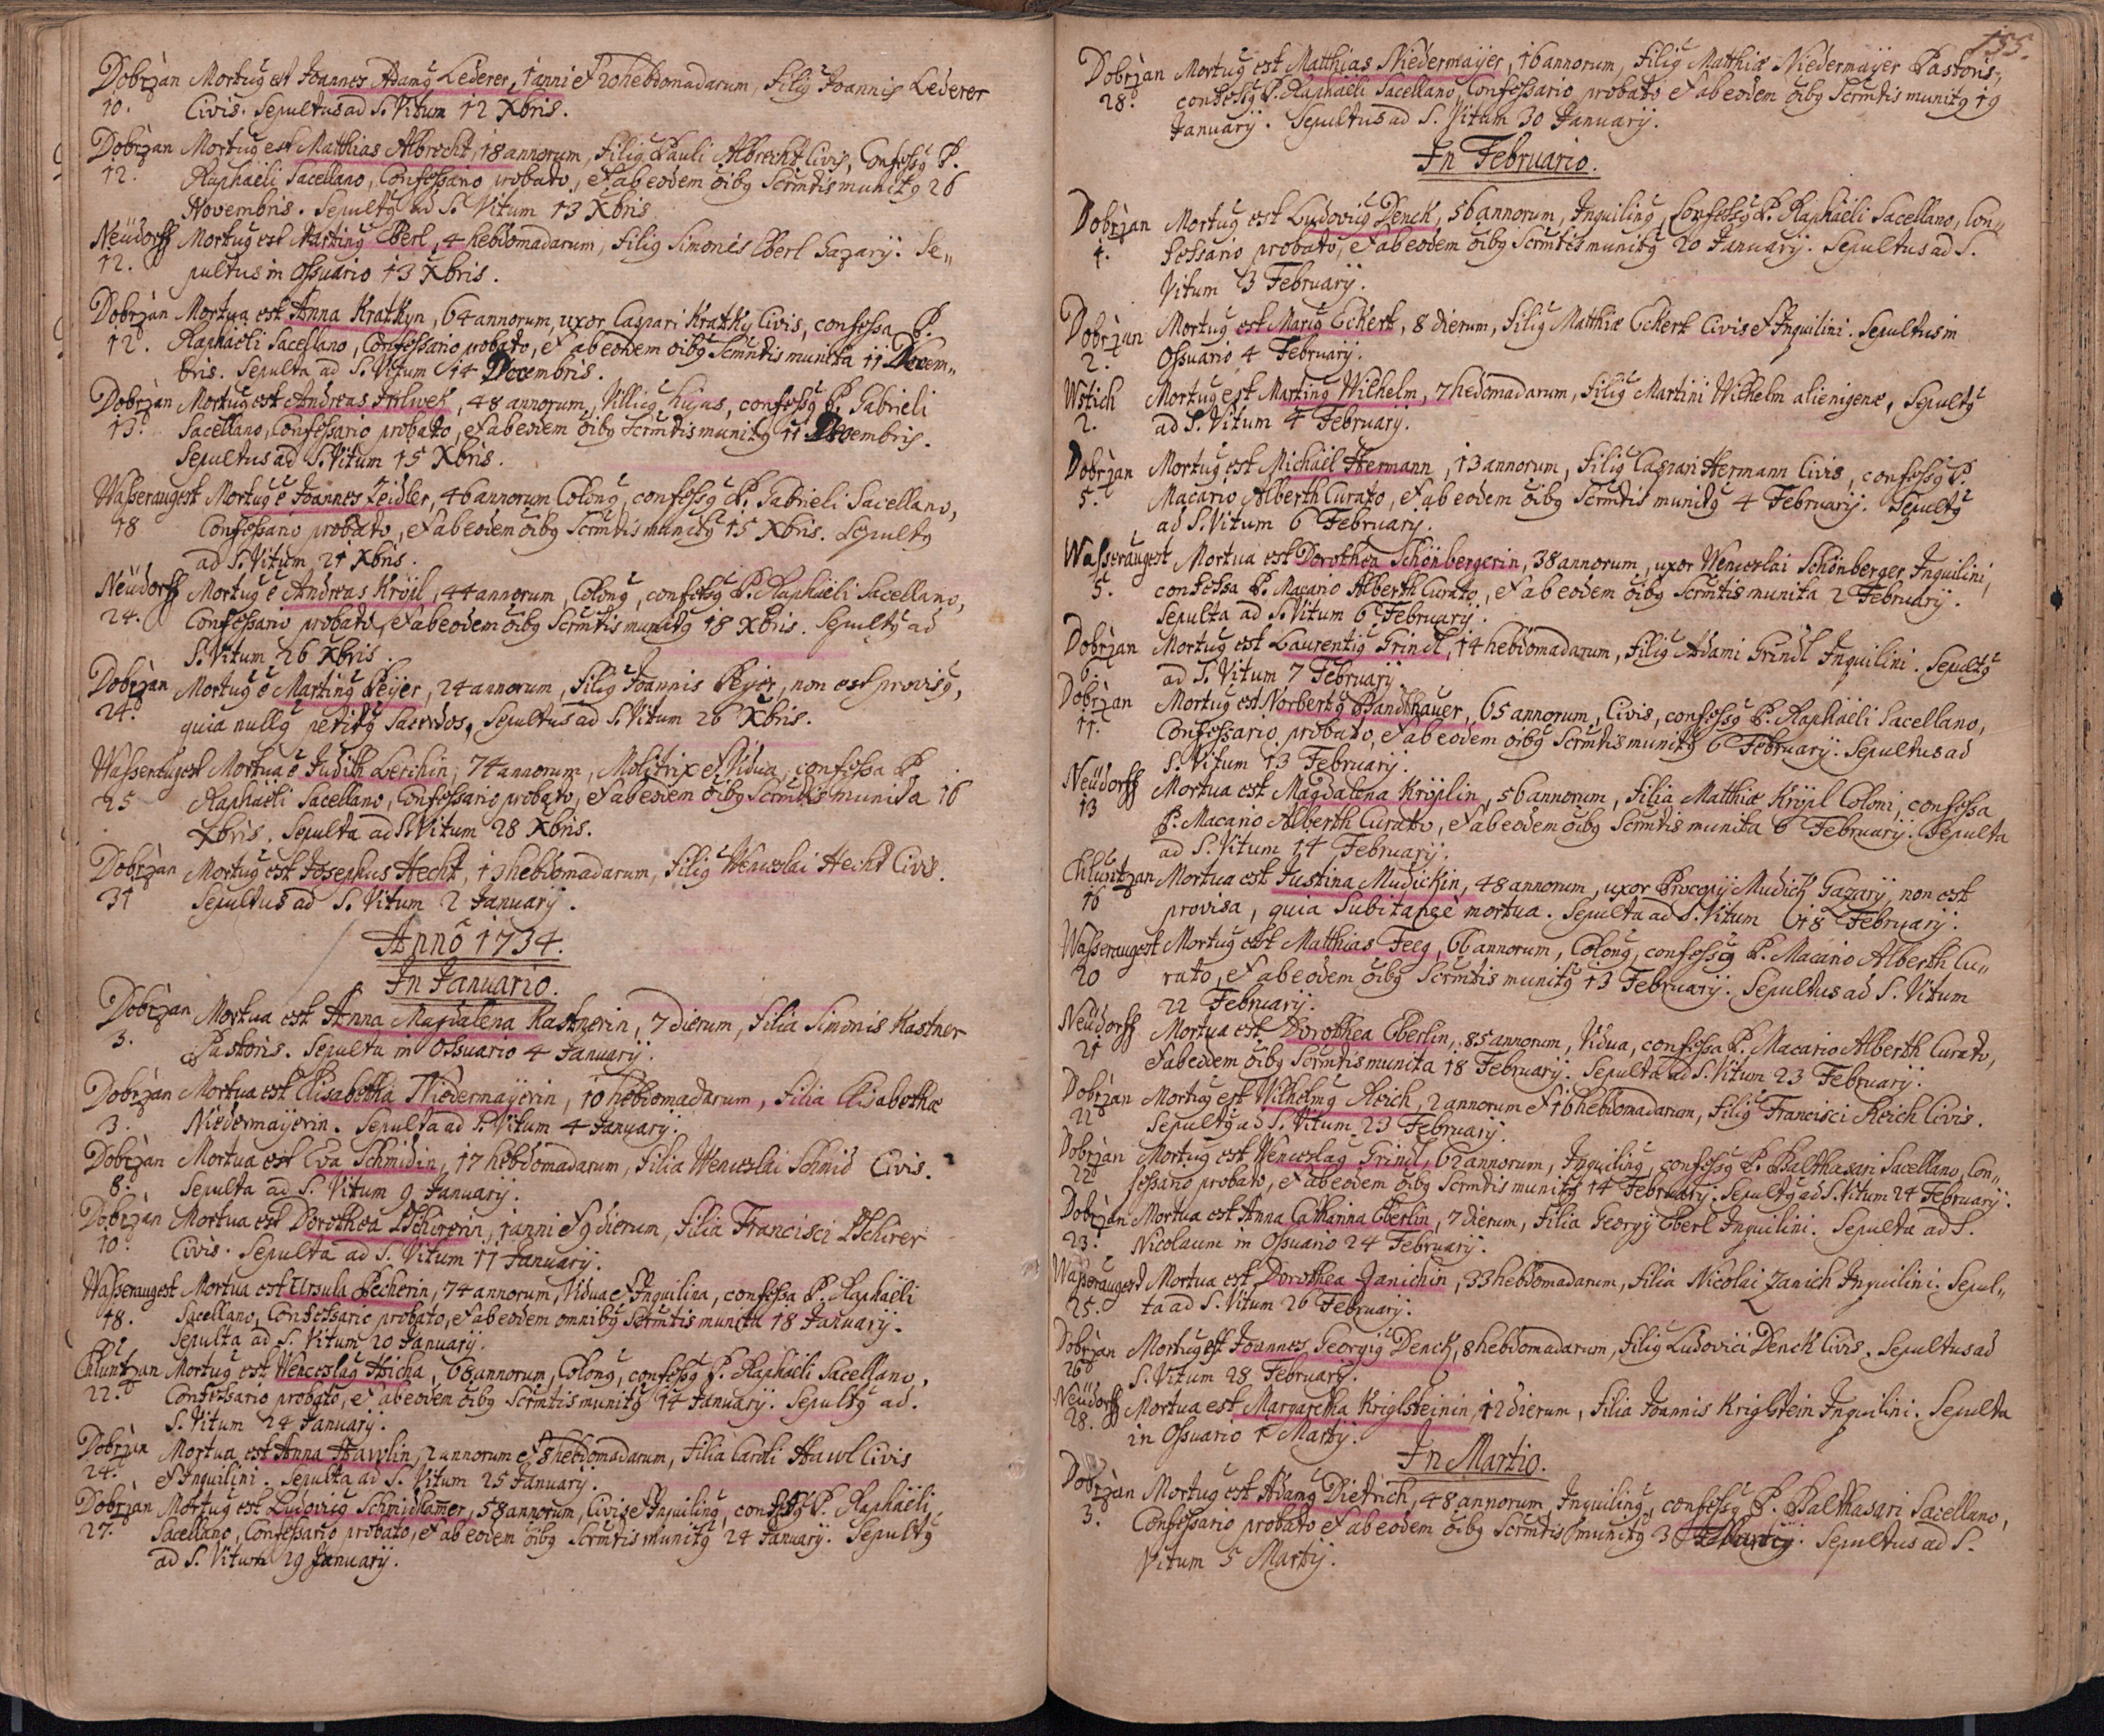 Dobrzan Mortuq est Joannes Adamq Lederer, 1 anni et 20 hebdomadarum, Filiq Joannis Lederer
10. Civis. Sepultus ad S. Vitum 12 Xbris.
Dobrzan Mortuq est Matthias Albrecht, 18 annorum, Filiq Pauli Albrecht Civis, Confessq P.
12. Raphaëli Sacellano, Confessario probato, et ab eodem oibq Scrmtis munitq 26
Novembris. Sepultq ad S. Vitum 13 Xbris.
Neüdorff Mortuq est Martinq Eberl, 4 hebdomadarum, Filiq Simonis Eberl Gazarij. Se„
12. pultus in Ossuario 13 Xbris.
Dobrzan Mortua est Anna Kratkyn, 64 annorum, uxor Caspari Kratky Civis, confessa P.
12. Raphaëli Sacellano, Confessario probato, et ab eodem oibq Scrmtis munita 11 Decem„
bris. Sepulta ad S. Vitum 14 Decembris.
Dobrzan Mortuq est Andreas, 48 annorum, Villicq hujas, confessq P. Gabrieli
13. Sacellano, Confessario probato, et ab eodem oibq Scrmtis munitq 11 Decembris.
Sepultus ad S. Vitum 15 Xbris.
Wasseraugest Mortuq ẽ Joannes Zeidler, 46 annorum Colonq, confessq P. Gabrieli Sacellano,
18 Confessario probato, et ab eodem oibq Scrmtis munitq 15 Xbris. Sepultq
ad S. Vitum 21 Xbris.
Neüdorff Mortuq ẽ Andreas Kröjl, 44 annorum, Colonq, confessq P. Raphaëli Sacellano,
24. Confessario probato, et ab eodem oibq Scrmtis munitq 18 Xbris. Sepultq ad
S. Vitum 26 Xbris.
Dobrzan Mortuq ẽ Martinq Peÿer, 24 annorum, Filiq Joannis Peÿer, non est provisq,
24. quia nullq petitq Sacerdos, Sepultus ad S. Vitum 26 Xbris.
Wasseraugest Mortua ẽ Judith Lerchin, 74 annorum, Molitrix et Vidua, confessa P.
25 Raphaëli Sacellano, Confessario probato, et ab eodem oibq Scrmtis munita 16
Xbris. Sepulta ad S. Vitum 28 Xbris.
Dobrzan Mortuq est Josephus Hecht, 13 hebdomadarum, Filiq Wenceslai Hecht Civis.
31 Sepultus ad S. Vitum 2 Januarij.
Anno 1734.
In Januario.
Dobrzan Mortua est Anna Magdalena Kastnerin, 7 dierum, Filia Simonis Kastner
3. Pastoris. Sepulta in Ossuario 4 Januarij.
Dobrzan Mortua est Elisabetha Niedermaÿerin, 10 hebdomadarum, Filia Elisabethæ
3. Niedermaÿerin. Sepulta ad S. Vitum 4 Januarij.
Dobrzan Mortua est Eva Schmidin, 17 hebdomadarum, Filia Wenceslai Schmid Civis.
8. Sepulta ad S. Vitum 9 Januarij.
Dobrzan Mortua est Dorothea Tschirerin, 1 anni et 9 dierum, Filia Francisci Tschirer
10. Civis. Sepulta ad S. Vitum 11 Januarij.
Wasseraugest Mortua est Ursula Pecherin, 74 annorum, Vidua et Inquilina, confessa P. Raphaëli
18. Sacellano, Confessario probato, et ab eodem omnibq Scrmtis munita 18 Januarij.
Sepulta ad S. Vitum 20 Januarij.
Chluntzan Mortuq est Wenceslaq Hricha, 68 annorum, Colonq, confessq P. Raphaëli Sacellano,
22. Confessario probato, et ab eodem oibq Scrmtis munitq 14 Januarij. Sepultq ad.
S. Vitum 24 Januarij.
Dobrzan Mortua est Anna Hawlin, 2 annorum et 8 hebdomadarum, Filia Caroli Hawl Civis
24. et Inquilini. Sepulta ad S. Vitum 25 Januarij.
Dobrzan Mortuq est Ludovicq Schmidham̃er, 58 annorum, Civis et Inquilinq, confessq P. Raphaëli
27. Sacellano, Confessario probato, et ab eodem oibq Scrmtis munitq 24 Januarij. Sepultq
ad S. Vitum 29 Januarij.
155.
Dobrzan Mortuq est Matthias Niedermaÿer, 16 annorum, Filiq Matthiæ Niedermaÿer Pastoris,
28. confessq P. Raphaëli Sacellano, Confessario probato et ab eodem oibq Scrmtis munitq 19
Januarij. Sepultus ad S. Vitum 30 Januarij.
In Februario.
Dobrzan Mortuq est Ludovicq Denck, 56 annorum, Inquilinq, Confessq P. Raphaëli Sacellano, Con„
1. fessario probato, et ab eodem oibq Scrmtis munitq 20 Januarij. Sepultus ad S.
Vitum 3 Februarij.
Dobrzan Mortuq est Mariq Eckert, 8 dierum, Filiq Matthiæ Eckert Civis et Inquilini. Sepultus in
2. Ossuario 4 Februarij.
Wstich Mortuq est Martinq Wilhelm, 7 hedomadarum, Filiq Martini Wilhelm alienigenæ, Sepultq
2. ad S. Vitum 4 Februarij.
Dobrzan Mortuq est Michaël Hermann, 13 annorum, Filiq Caspari Hermann Civis, confessq P.
5. Macario Alberth Curato, et ab eodem oibq Scrmtis munitq 4 Februarij. Sepultq
ad S. Vitum 6 Februarij.
Wasseraugest Mortua est Dorothea Schönbergerin, 38 annorum, uxor Wenceslai Schönberger Inquilini,
5. confessa P. Macario Alberth Curato, et ab eodem oibq Scrmtis munita 2 Februarij.
Sepulta ad S. Vitum 6 Februarij.
Dobrzan Mortuq est Laurentiq Grindl, 14 hebdomadarum, Filiq Adami Grindl Inquilini. Sepultq
6. ad S. Vitum 7 Februarij
Dobrzan Mortuq est Norbertq Bandthauer, 65 annorum, Civis, confessq P. Raphaëli Sacellano,
11. Confessario probato, et ab eodem oibq Scrmtis munitq 6 Februarij. Sepultus ad
S. Vitum 13 Februarij.
Neüdorff Mortua est Magdalena Kröjlin, 56 annorum, Filia Matthiæ Kröjl Coloni, confessa
13 P. Macario Alberth Curato, et ab eodem oibq Scrmtis munita 6 Februarij. Sepulta
ad S. Vitum 14 Februarij.
Chluntzan Mortua est Justina Mudickin, 48 annorum, uxor Procopij Mudick Gazarij, non est
16 provisa, quia Subitaneè mortua. Sepulta ad S. Vitum 18 Februarij.
Wasseraugest Mortuq est Matthias Feeg, 66 annorum, Colonq, confessq P. Macario Alberth Cu„
20 rato, et ab eodem oibq Scrmtis munitq 13 Februarij. Sepultus ad S. Vitum
22 Februarij.
Neüdorff Mortua est Dorothea Eberlin, 85 annorum, Vidua, confessa P. Macario Alberth Curato,
21 et ab eodem oibq Scrmtis munita 18 Februarij. Sepulta ad S. Vitum 23 Februarij.
Dobrzan Mortuq est Wilhelmq Reich, 2 annorum et 16 hebdomadarum, Filiq Francisci Reich Civis.
22 Sepultq ad S. Vitum 23 Februarij.
Dobrzan Mortuq est Wenceslaq Grindl, 62 annorum, Inquilinq, confessq P. Balthasari Sacellano, Con„
22 fessario probato, et ab eodem oibq Scrmtis munitq 14 Februarij. Sepultq ad S. Vitum 24 Februarij.
Dobrzan Mortua est Anna Catharina Eberlin, 7 dierum, Filia Georgij Eberl Inquilini. Sepulta ad S.
23. Nicolaum in Ossuario 24 Februarij.
Wasseraugest Mortua est Dorothea Janichin, 33 hebdomadarum, Filia Nicolai Janich Inquilini. Sepul„
25. ta ad S. Vitum 26 Februarij.
Dobrzan Mortuq est Joannes Georgiq Denck, 8 hebdomadarum, Filiq Ludovici Denck Civis. Sepultus ad
26 S. Vitum 28 Februarij.
Neüdorff Mortua est Margaretha Kriglsteinin, 12 dierum, Filia Joannis Kriglstein Inquilini. Sepulta
28. in Ossuario 1 Martij.
In Martio.
Dobrzan Mortuq est Adamq Dietrich, 48 annorum, Inquilinq, confessq P. Balthasari Sacellano,
3. Confessario probato et ab eodem oibq Scrmtis munitq 3 Martij. Sepultus ad S.
Vitum 5 Martij.